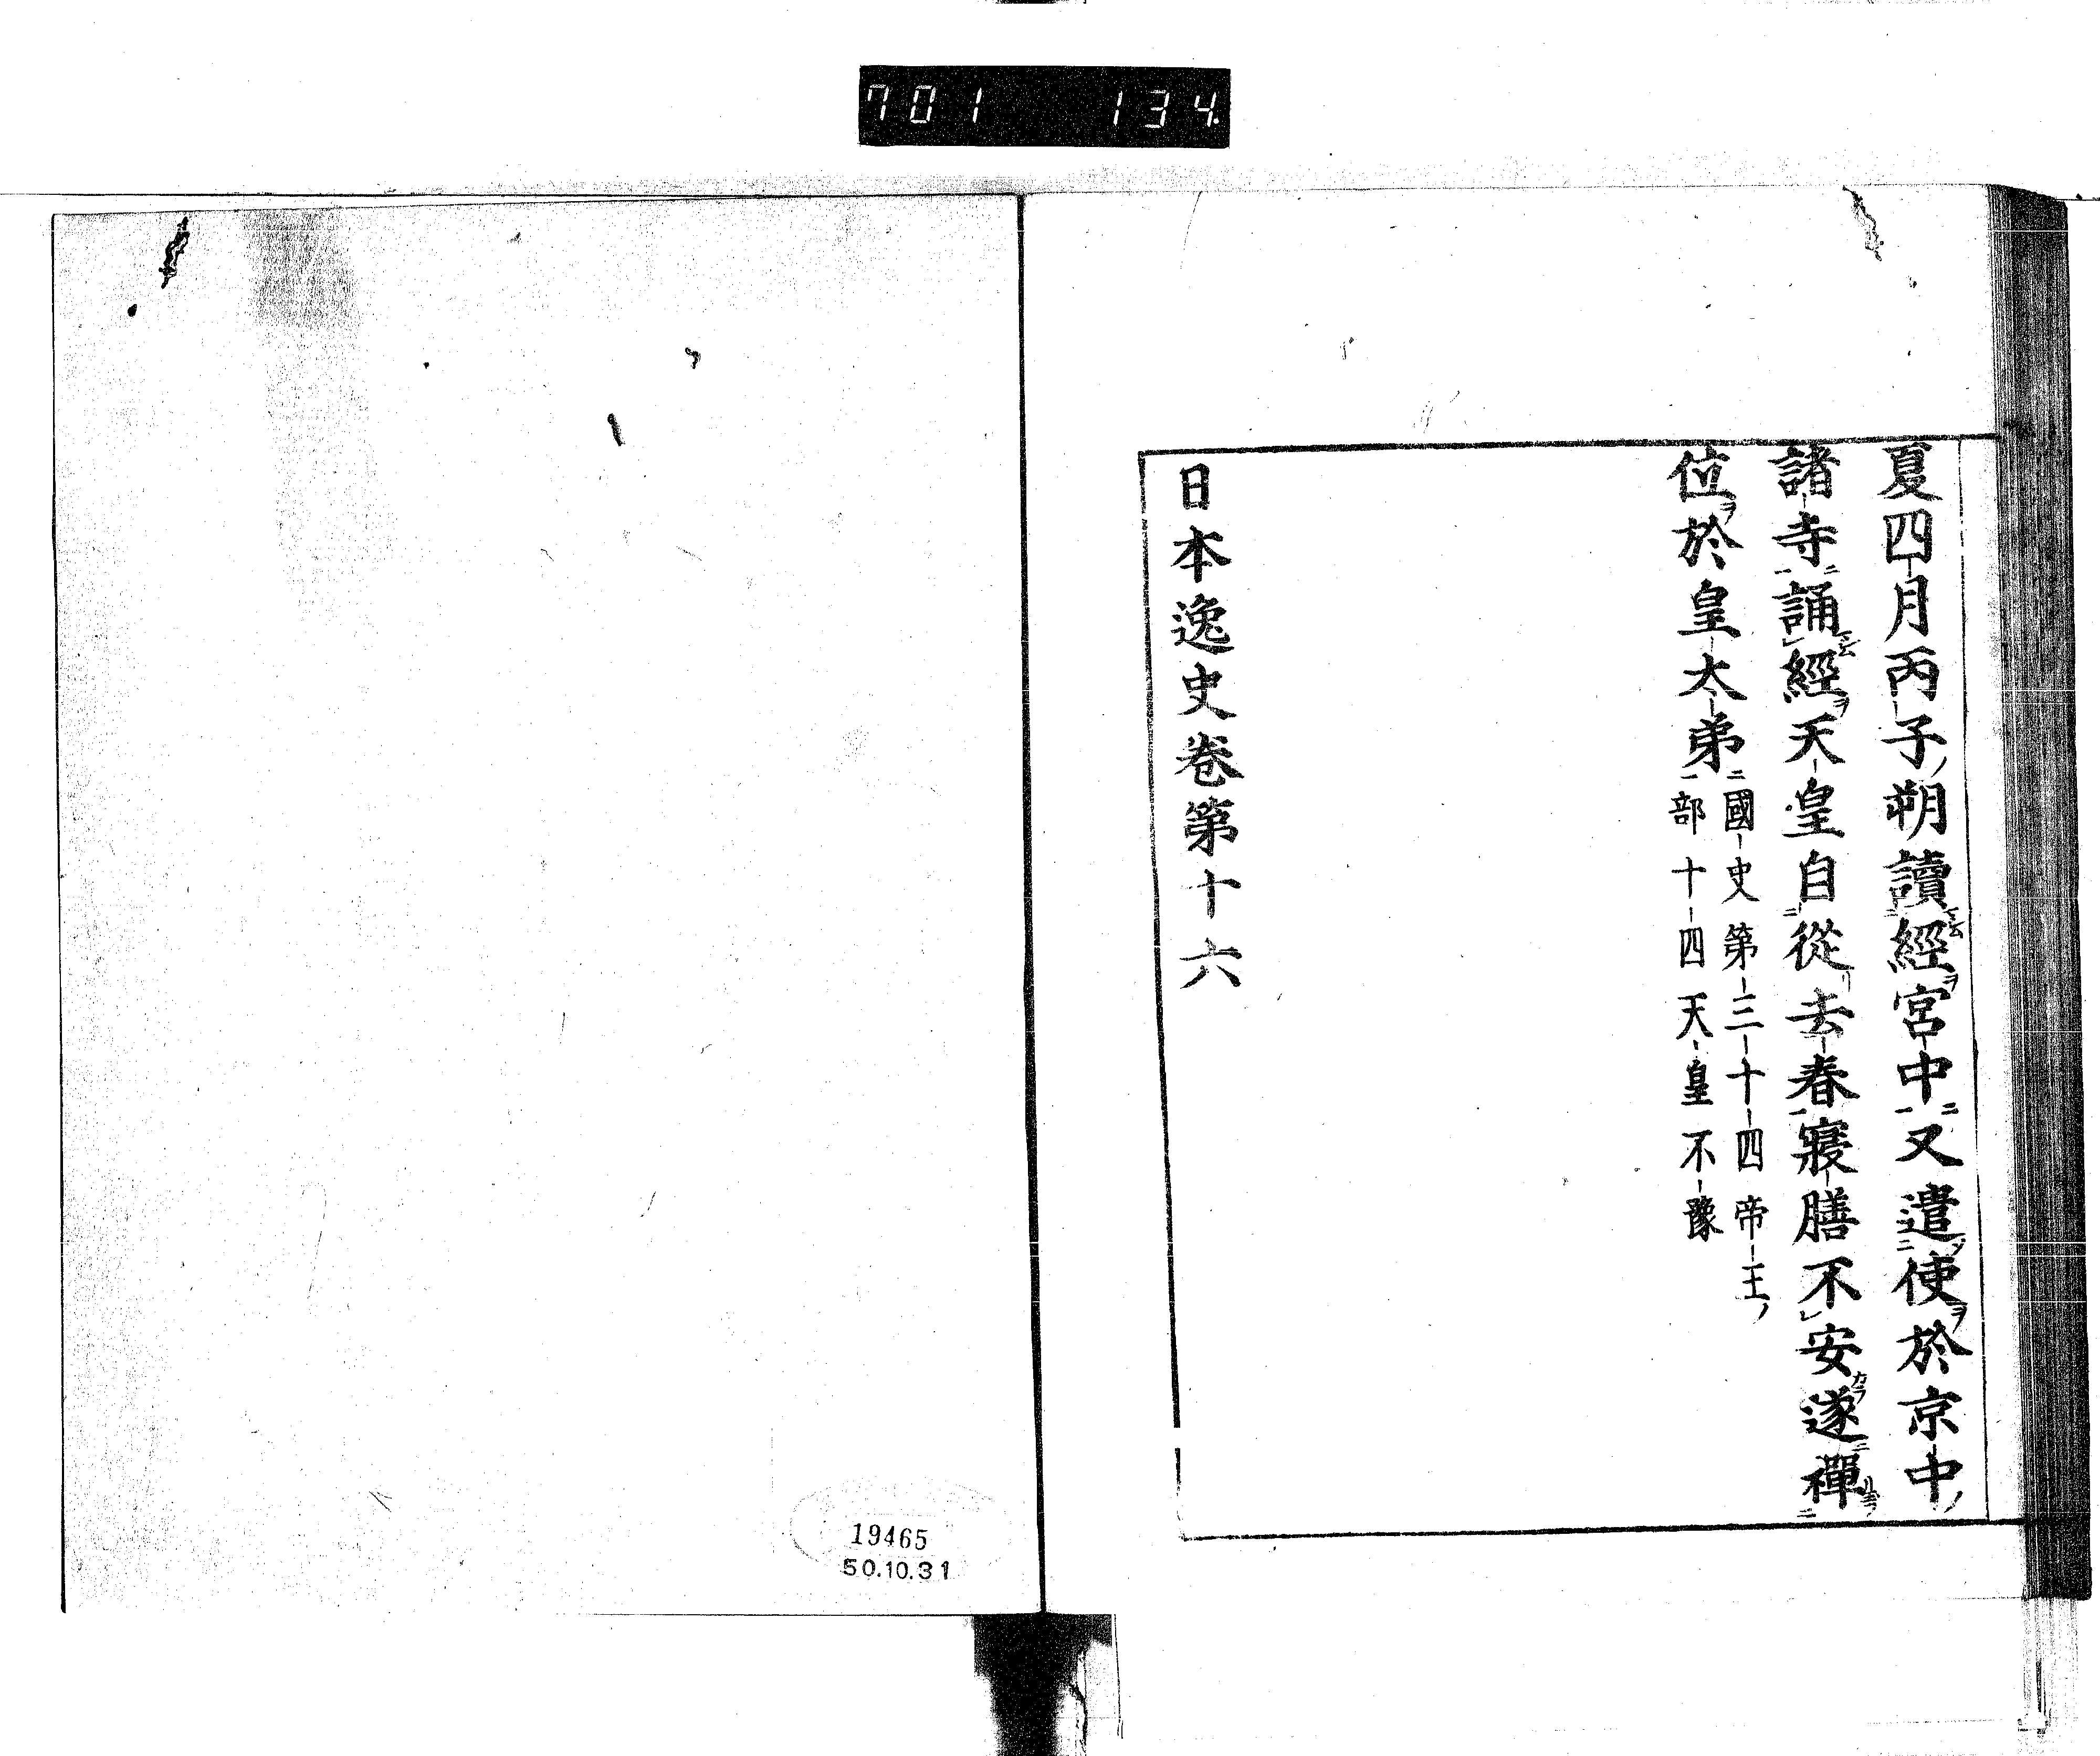 701 134.
夏四月丙子朔讀經宮中又遣使於京中
諸寺誦經天皇自從去春寢膳不安遂禪
位於皇太弟
國史第三十四帝王
部十四天皇不豫
日本逸史卷第十六
19465
50.10.31